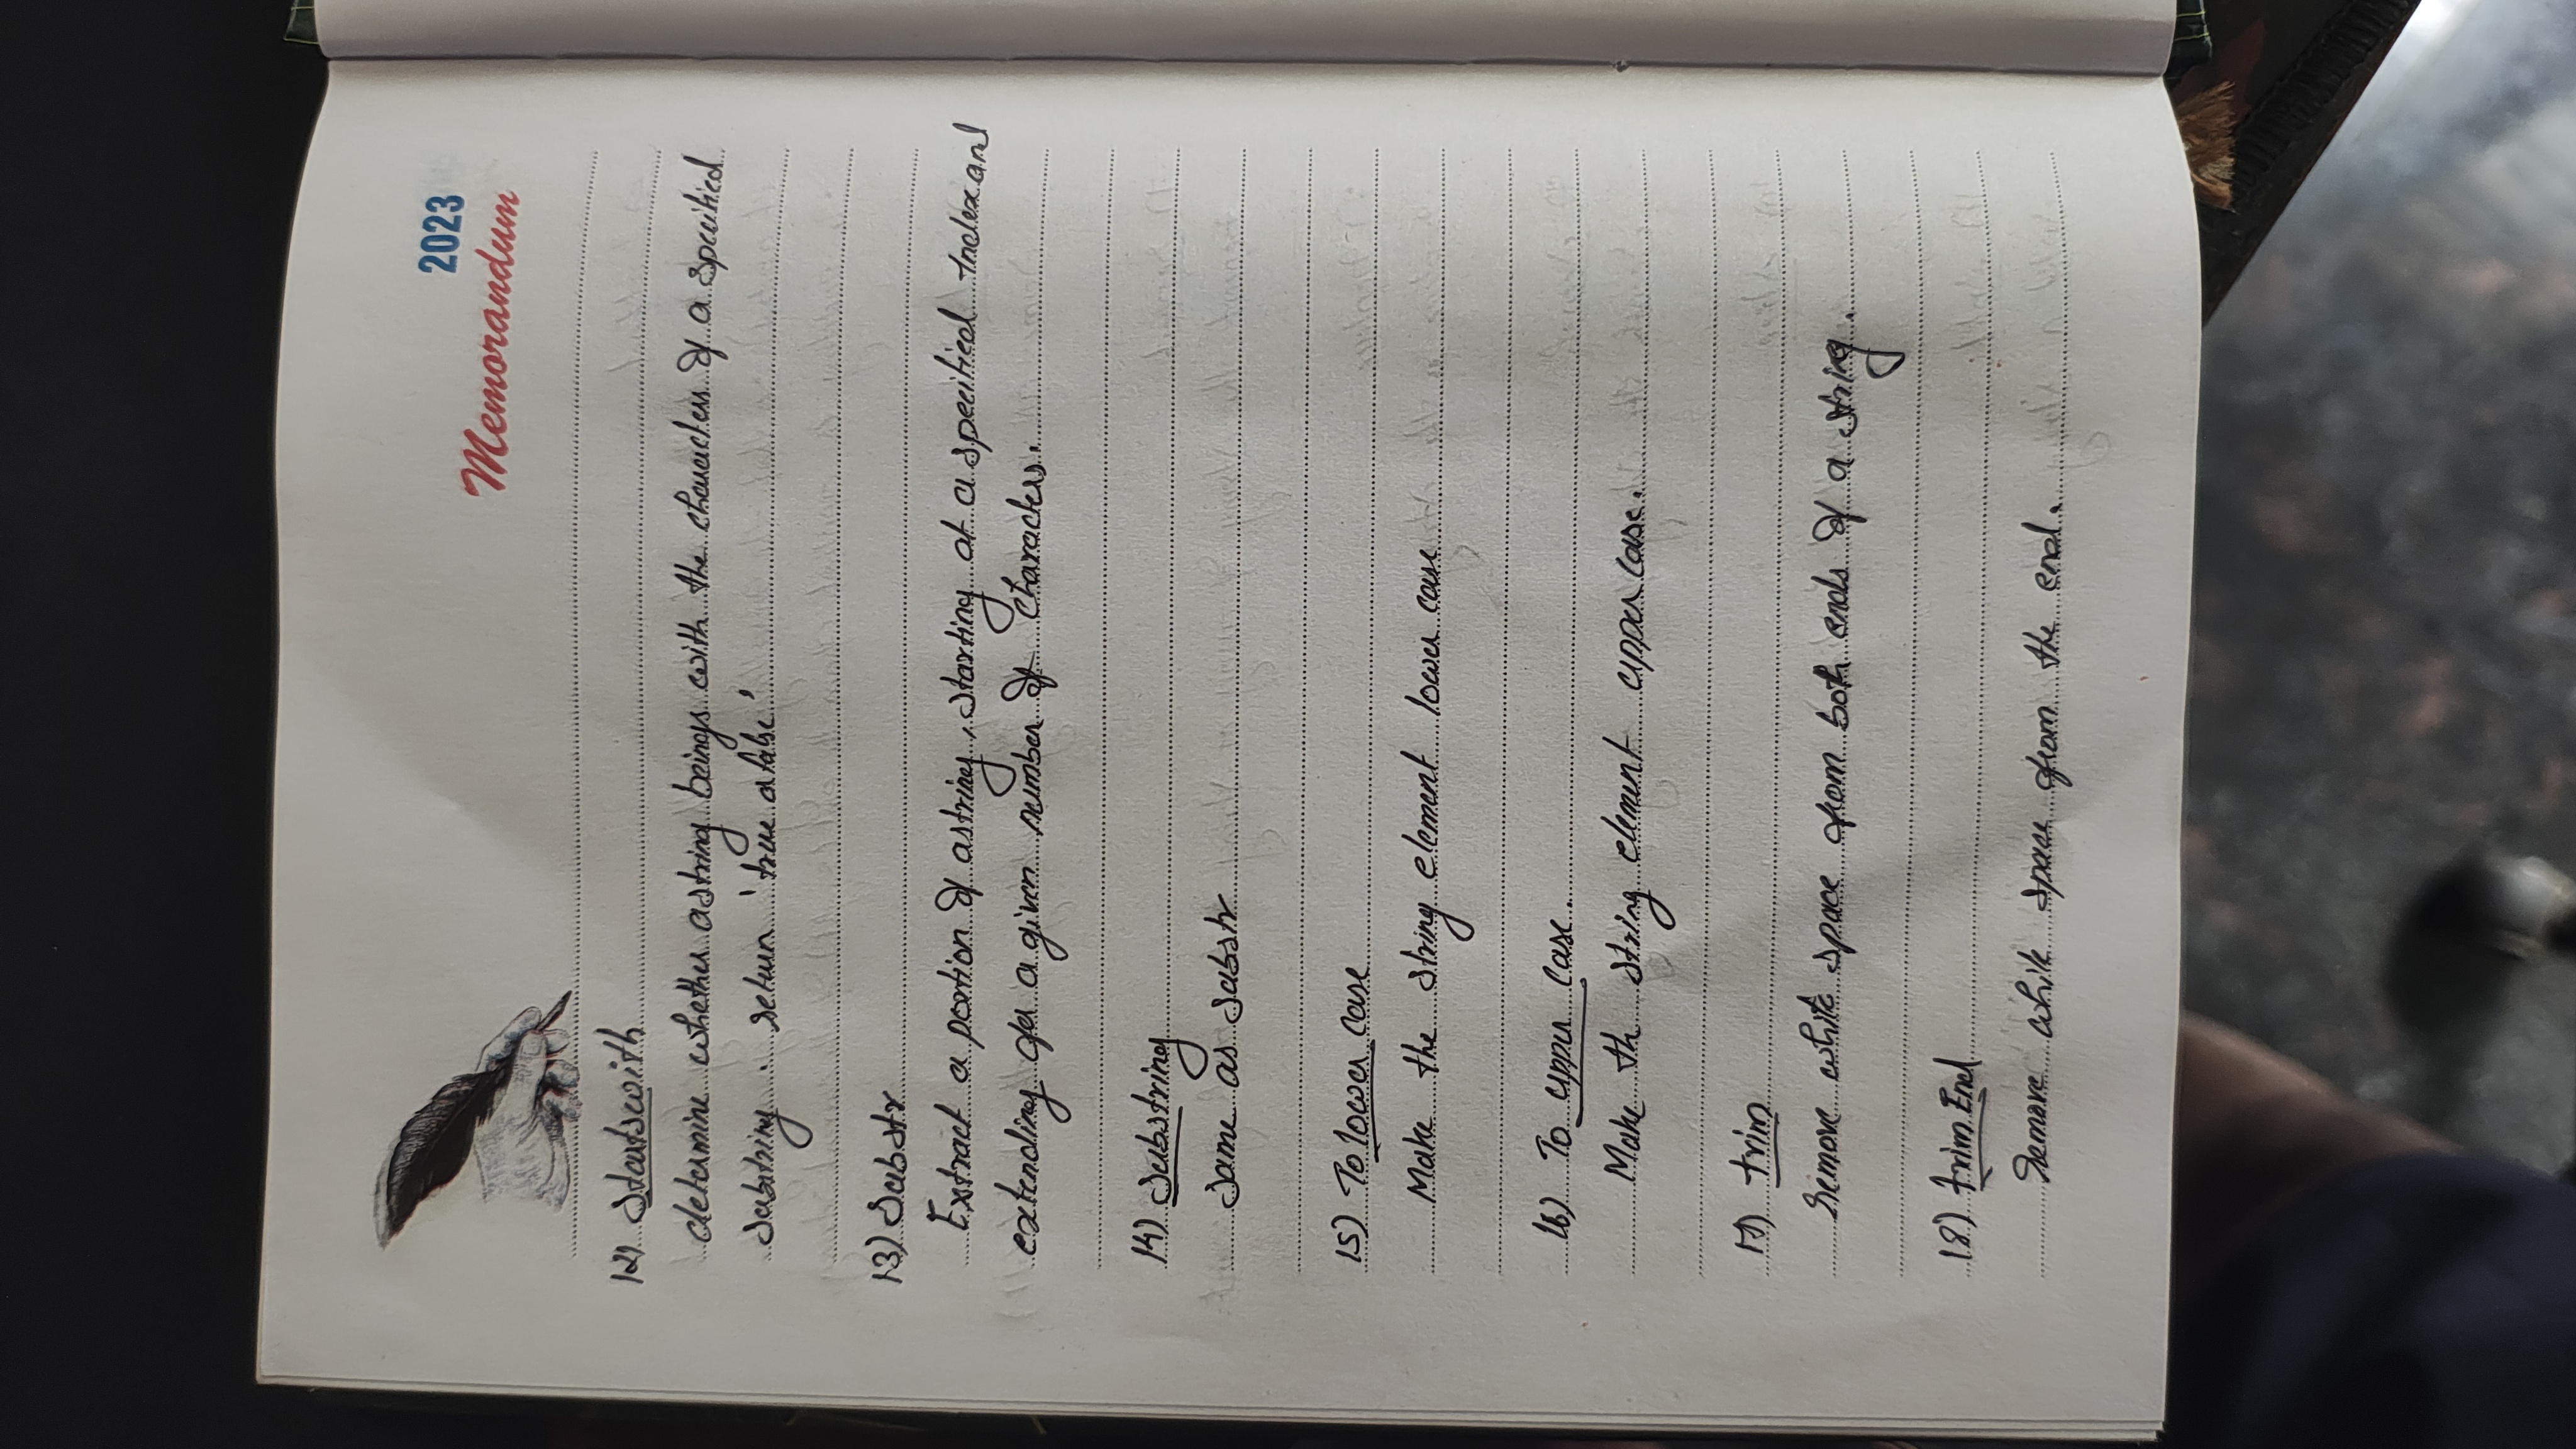 2023
Memorandum
12) Startswith
determine whether a string beings with the characters of a specified
substring. return 'true or false'
13) Substr
Extract a portion of a string, starting at a specified Index and
extending for a given number of characters.
14) Substring
Same as Substr
15) To lower case
Make the string element lower case
16) To upper case.
Make th string element upper case.
17) trim
remove white space from both ends of a string.
18) trim End
remove white space from the end.